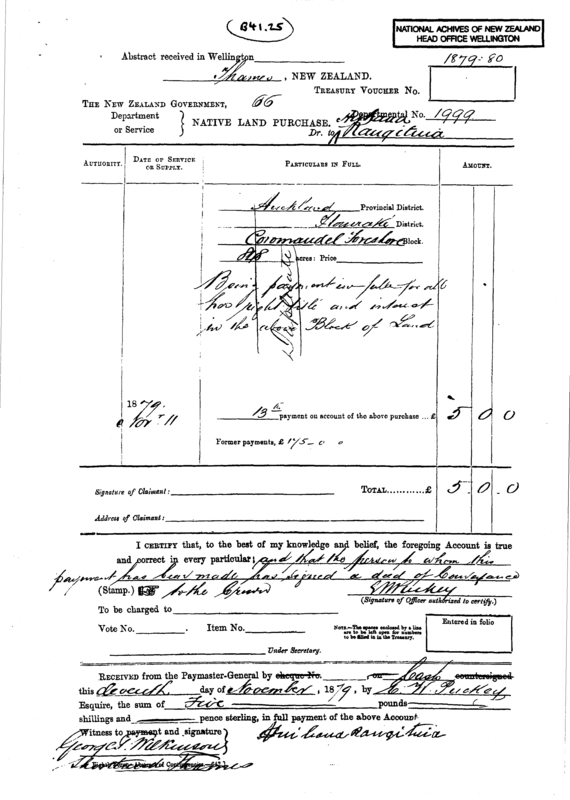 B41.25
NATIONAL ACHIVES OF NEW ZEALAND
HEAD OFFICE WELLINGTON
Abstract received in Wellington
1879-80
Thames, NEW ZEALAND.
TREASURY VOUCHER No.
THE NEW ZEALAND GOVERNMENT, 66
Department
or Service
NATIVE LAND PURCHASE.
Departmental No. 1999
Dr. to Rangituia
AUTHORITY.
DATE OF SERVICE
OR SUPPLY.
PARTICULARS IN FULL.
AMOUNT.
Auckland Provincial District.
Hauraki District.
Coromandel Foreshore Block.
acres: Price
Duplicate
Being payment in full for all
her right title and interest
in the above Block of Land
1879.
Nov 11
13th payment on account of the above purchase ... £ 5 0 0
Former payments, £ 175 - 0 0
Signature of Claimant:
TOTAL............£ 5 . 0 . 0
Address of Claimant:
I CERTIFY that, to the best of my knowledge and belief, the foregoing Account is true
and correct in every particular; and that the person to whom this
payment has been made has signed a deed of Conveyance
(Stamp.) to the Crown
(Signature of Officer authorized to certify.)
To be charged to
Vote No. . Item No.
NOTE.—The spaces enclosed by a line
are to be left open for numbers
to be filled in in the Treasury.
Entered in folio
Under Secretary.
RECEIVED from the Paymaster-General by cheque No. , on Cash countersigned
this eleventh day of November, 1879, by E. W. Puckey
Esquire, the sum of Five pounds
shillings and pence sterling, in full payment of the above Account
Witness to payment and signature
George S. Wilkinson
Thames